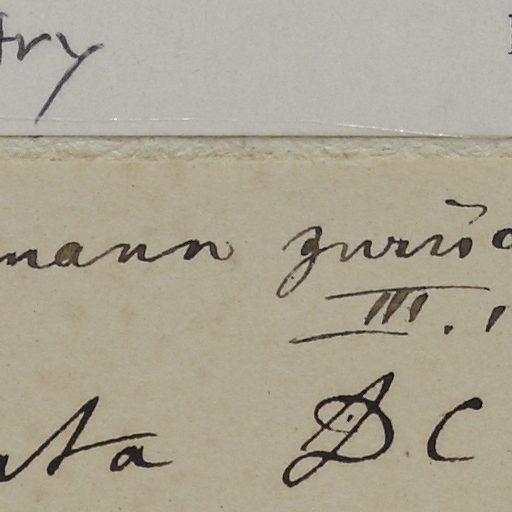 try
mann zurüc
III. 1
ata DC